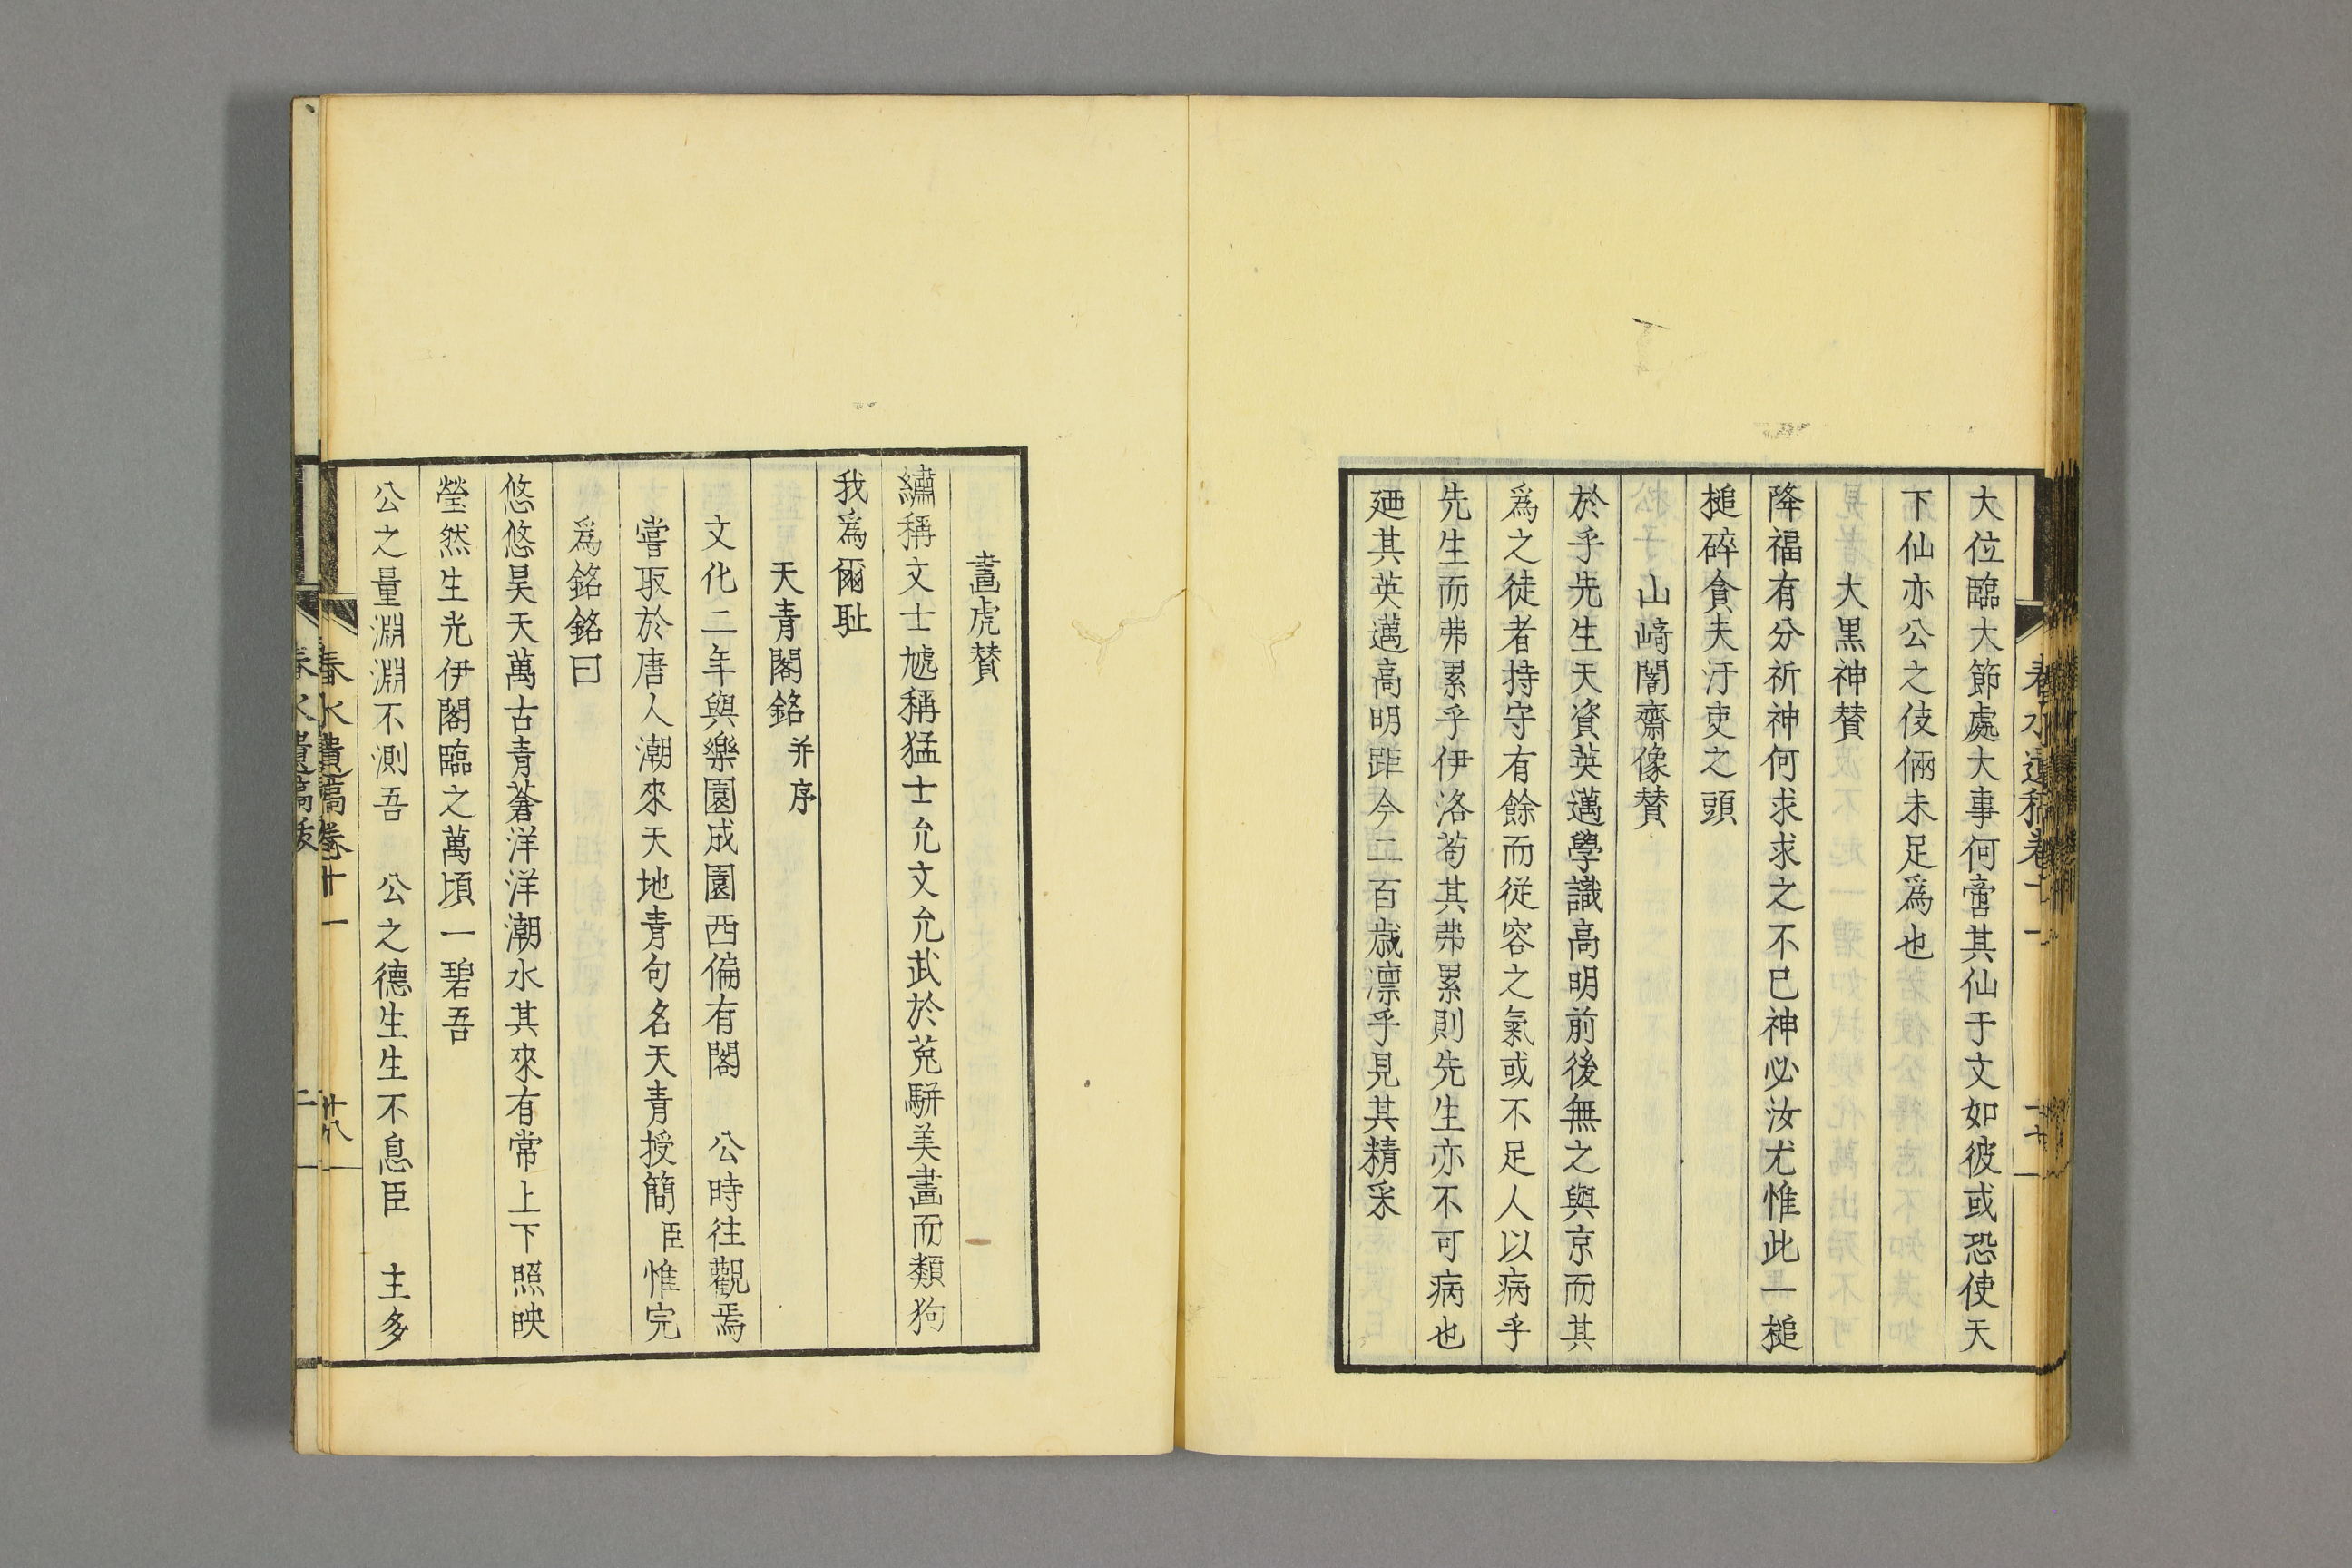 大位臨大節處大事何啻其仙于文如彼或恐使天
下仙亦公之伎倆未足爲也
大黒神賛
降福有分祈神何求求之不已神必汝尤惟此一槌
槌碎貪夫汙吏之頭
山﨑闇齋像賛
於乎先生天資英邁學識高明前後無之與京而其
爲之徒者持守有餘而従容之氣或不足人以病乎
先生而弗累乎伊洛苟其弗累則先生亦不可病也
廼其英邁高明距今二百歳凛乎見其精采
畫虎賛
繡稱文士虓稱猛士允文允武於菟駢美畫而類狗
我爲爾耻
天青閣銘并序
文化二年與樂園成園西偏有閣　公時往觀焉
嘗取於唐人潮來天地青句名天青授簡臣惟完
爲銘銘曰
悠悠昊天萬古青蒼洋洋潮水其來有常上下照映
瑩然生光伊閣臨之萬頃一碧吾
公之量淵淵不測吾　公之德生生不息臣　主多
春水遺稿卷十一
十八